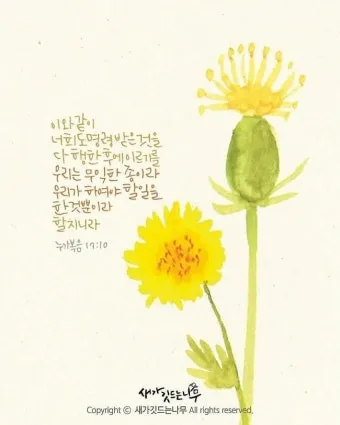 이와같이
너희도명령받은것을
다 행한 후에이르기를
우리는 무익한 종이라
우리가 하여야 할일을
한것뿐이라
할지니라
누가복음 17:10
새가깃드는나무
Copyright ⓒ 새가깃드는나무 All rights reserved.